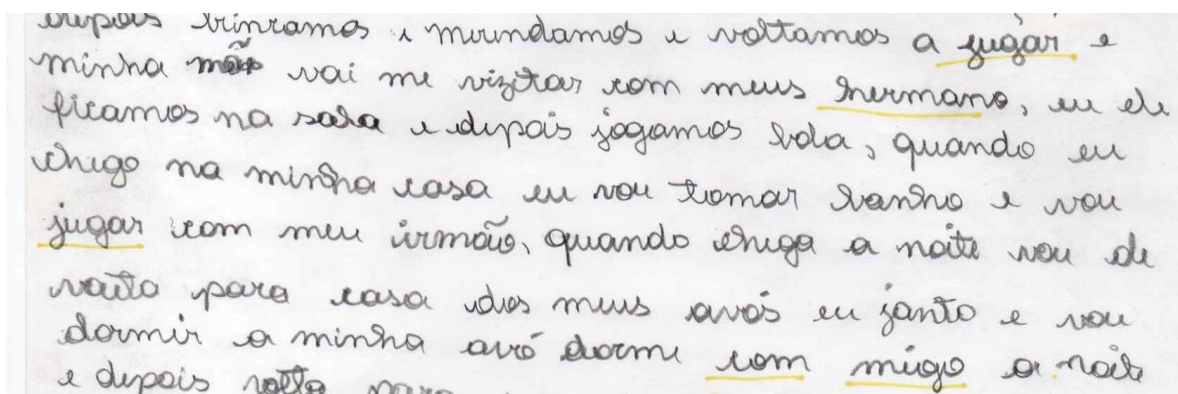 depois brincamos e merendamos e voltamos a jugar e
minha mãe vai me vizitar com meus hermano, eu ele
ficamos na sala e depois jogamos bola, quando eu
chego na minha casa eu vou tomar banho e vou
jugar com meu irmão, quando chega a noite vou de
volta para casa dos meus avós eu janto e vou
dormir a minha avó dorme com migo a noite
e depois volta para